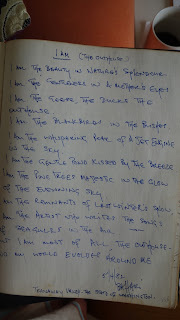 I AM (THE OUTHOUSE)
I AM THE BEAUTY IN NATURE'S SPLENDOUR
I AM THE TENDERNESS IN A MOTHER'S EYES
I AM THE GEESE THE DUCKS THE
OUTHOUSE
I AM THE BLACKBIRD IN THE BUSHES
I AM THE WHISPERING ROAR OF A JET ENGINE
IN THE SKY
I AM THE GENTLE POND KISSED BY THE BREEZE
I AM THE PINE TREES MAJESTIC IN THE GLOW
OF THE EVENING SKY
I AM THE REMNANTS OF LAST WINTER'S SNOW
I AM THE ARTIST WHO WRITES THE SONGS
OF SEAGULLS IN THE AIR
I AM MOST OF ALL THE OUTHOUSE
WORLD EVOLVES AROUND ME
THE STATE OF WASHINGTON